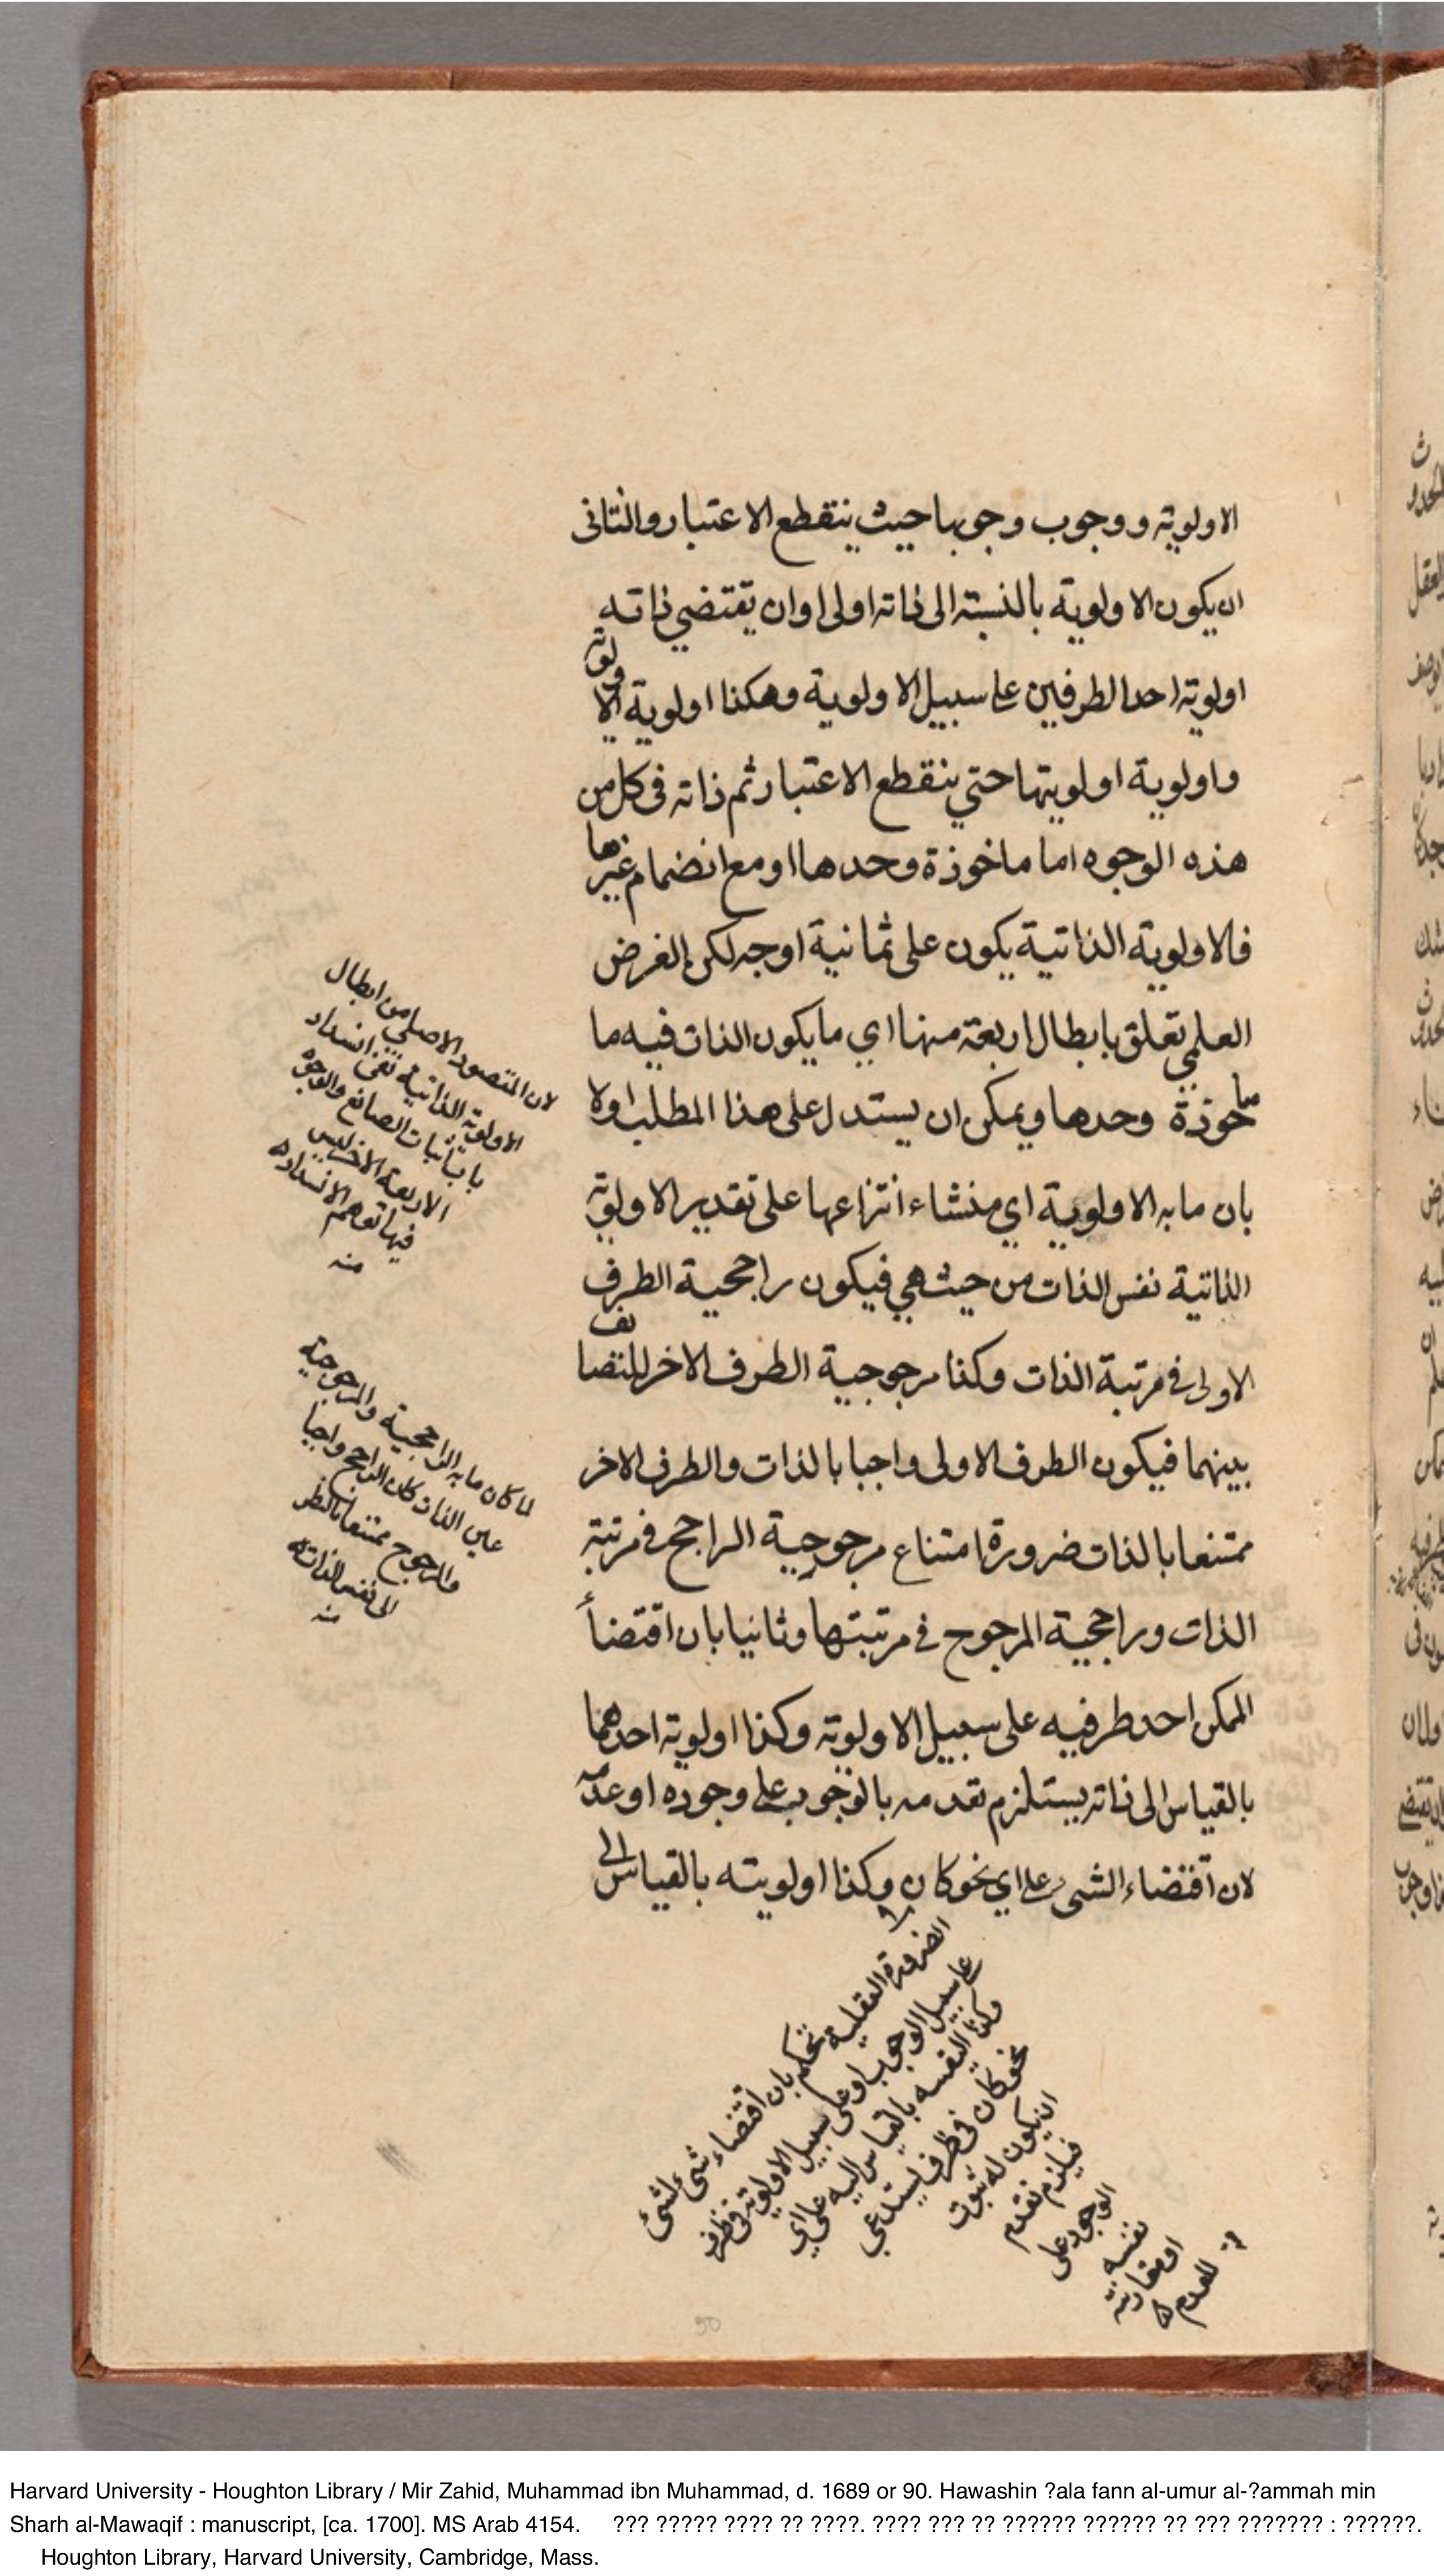 الاولوية ووجوب وجوبها حيث ينقطع الاعتبار والثانى
ان يكون الاولوية بالنسبة الى ذاته اولى او ان يقتضي ذاته
اولوية احد الطرفين على سبيل الاولوية وهكذا اولوية الاولوية
واولوية اولويتها حتي ينقطع الاعتبار ثم ذاته فى كل من
هذه الوجوه اما ماخوذة وحدها او مع انضمام غيرها
فالاولوية الذاتية يكون على ثمانية اوجه لكن الغرض
العلمي تعلق بابطال اربعة منها اي ما يكون الذات فيه ما
خوذة وحدها ويمكن ان يستدل على هذا المطلب اولا
بان ما به الاولوية اي منشاء انتزاعها على تقدير الاولوية
الذاتية نفس الذات من حيث هي فيكون راجحية الطرف
الاولى في مرتبة الذات وكذا مرجوحية الطرف الاخر للتضايف
بينهما فيكون الطرف الاولى واجبا بالذات والطرف الاخر
ممتنعا بالذات ضرورة امتناع مرجوحية الراجح في مرتبة
الذات وراجحية المرجوح في مرتبتها وثانيا بان اقتضاء
الممكن احد طرفيه على سبيل الاولوية وكذا اولوية احدهما
بالقياس الى ذاته يستلزم تقدمه بالوجوب على وجوده او عدمه
لان اقتضاء الشي على اي نحو كان وكذا اولويته بالقياس الى
لان المقصود الاصلي من ابطال
الاولوية الذاتية نفي انسداد
باب اثبات الصانع والوجوه
الاربعة الاخر ليس
فيها توهم الانسداد
منه
لما كان ما به الراجحية والمرجوحية
عين الذات كان الراجح واجبا
والمرجوح ممتنعا بالنظر
الى نفس الذات
منه
الضرورة العقلية تحكم بان اقتضاء شئ لشئ
على سبيل الوجوب او على سبيل الاولوية فى ظرف
وكذا لنفسه بالقياس اليه على اي
نحو كان فى ظرف يستدعي
ان يكون له ثبوت
فيلزم تقدم
الوجود على
نفسه
او مقارنته
للعدم
50
Harvard University - Houghton Library / Mir Zahid, Muhammad ibn Muhammad, d. 1689 or 90. Hawashin ?ala fann al-umur al-?ammah min
Sharh al-Mawaqif : manuscript, [ca. 1700]. MS Arab 4154. ??? ????? ???? ?? ????. ???? ??? ?? ?????? ?????? ?? ??? ??????? : ??????.
Houghton Library, Harvard University, Cambridge, Mass.